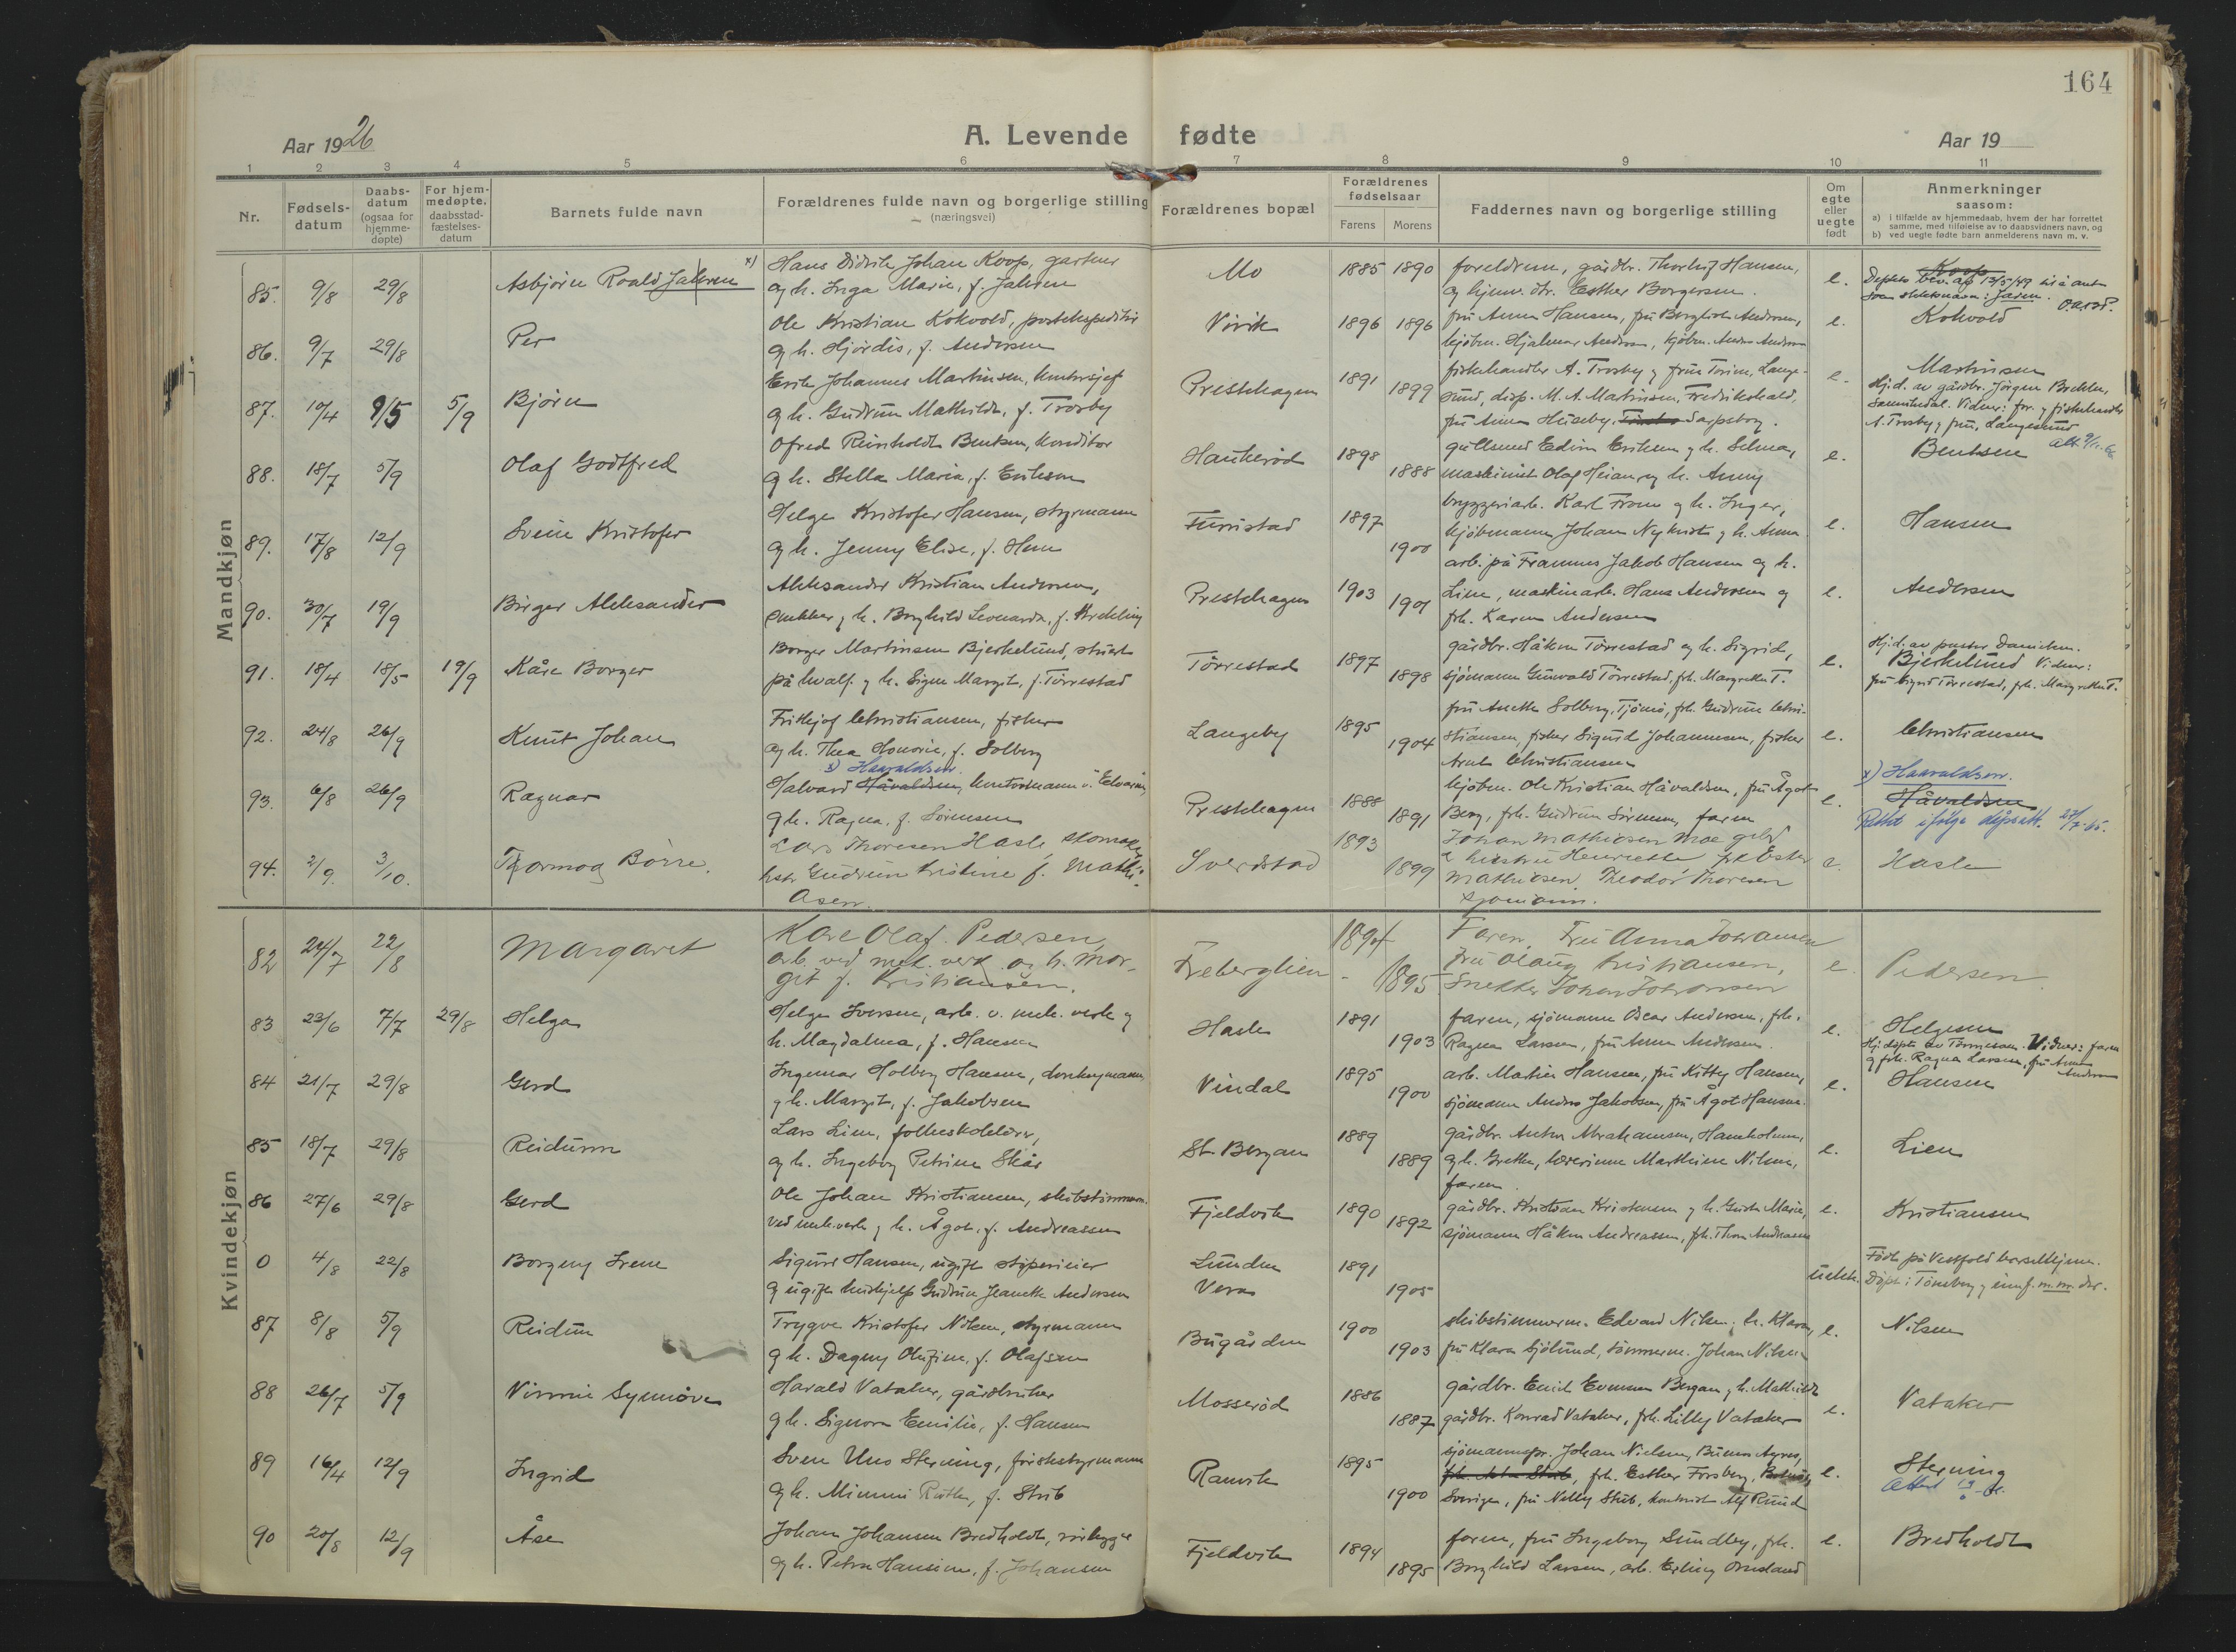 164
Aar 1926
A. Levende fødte
Aar 19
1 2 3 4 5 6 7 8 9 10 11
Nr.
Fødsels-
datum
Daabs-
datum
(ogsaa for
hjemme-
døpte)
For hjem-
medøpte,
daabsstad-
fæstelses-
datum
Barnets fulde navn
Forældrenes fulde navn og borgerlige stilling
(næringsvei)
Forældrenes bopæl
Forældrenes
fødselsaar
Farens Morens
Faddernes navn og borgerlige stilling
Om
egte
eller
uegte
født
Anmerkninger
saasom:
a) i tilfælde av hjemmedaab, hvem der har forrettet
samme, med tilføielse av to daabsvidners navn, og
b) ved uegte fødte barn anmelderens navn m. v.
Mandkjøn
85. 9/8 29/8 Asbjørn Roald Jahren x)
Hans Didrik Johan Koop, gartner
og h. Inga Marie, f. Jahren
Mo 1885 1890
foreldrene, gårdbr. Thorleif Hansen,
og hjemv. dtr. Esther Borgersen.
e. Koop
Deptets bev. av 13/5-49 til å anta
som slektsnavn: Jaren.
86. 9/7 29/8 Per
Ole Kristian Kokvold, postekspeditør
og h. Hjørdis, f. Andersen
Virik 1896 1896
fru Anna Hansen, fru Borghild Andersen,
kjøbm. Hjalmar Andersen, kjøbm. Anders Andersen
e. Kokvold
87. 10/4 9/5 5/9 Bjørn
Erik Johannes Martinsen, kontorsjef
og h. Gudrun Mathilde, f. Trosby
Prestehagen 1891 1899
fiskehandler A. Trosby og frue Torine, Lange-
sund, disp. M. A. Martinsen, Fredrikshald,
fru Anna Huseby, Sarpsborg.
e. Martinsen
Hj.d. av gårdbr. Jørgen Brekke,
Sannikedal. Vidner: far og fiskehandler
A. Trosby og frue, Langesund
88. 18/7 5/9 Olaf Godtfred
Ofred Reinholdt Bentsen, konditor
og h. Stella Maria, f. Eriksen
Haukerød 1898 1888
gullsmed Edvin Eriksen og h. Selma,
maskinist Olaf Heian og h. Anny
e. Bentsen
89. 17/8 12/9 Svein Kristofer
Helge Kristofer Hansen, styrmann
og h. Jenny Elise, f. Hem
Furustad 1897 1900
bryggeriarb. Karl From og h. Inger,
kjøbmann Johan Nykvist og h. Anna
e. Hansen
90. 30/7 19/9 Birger Aleksander
Aleksander Kristian Andersen,
snekker og h. Borghild Leonarda, f. Strekling
Prestehagen 1903 1901
arb. på Framnes Jakob Hansen og h.
Line, maskinarb. Hans Andersen og
frk. Karen Andersen
e. Andersen
91. 18/4 18/5 19/9 Kåre Borger
Borger Martinsen Bjerkelund, stuert
på hvalf. og h. Signe Margit, f. Tørrestad
Tørrestad 1897 1898
gårdbr. Håkon Tørrestad og h. Sigrid,
sjømann Gunvald Tørrestad, frk. Margrethe T.
e. Hj.d. av pastor Danielsen.
Bjerkelund Vidner:
fru Sigrid Tørrestad, frk. Margrethe T.
92. 24/8 26/9 Knut Johan
Fritjof Christiansen, fisker
og h. Thea Honorie, f. Solberg
Langeby 1895 1904
fru Anette Solberg, Tjømø, frk. Gudrun Chri-
stiansen, fisker Sigurd Johannesen, fisker
Arnt Christiansen
e. Christiansen
93. 6/8 26/9 Ragnar
x) Haavaldsen
Halvard Håvaldsen, kontormann
og h. Ragna, f. Sørensen
Prestehagen 1888 1891
kjøbm. Ole Kristian Håvaldsen, fru Ågot
Berg, frk. Gudrun Sørensen, faren
e. x) Haavaldsen.
Håvaldsen
Rettet ifølge dåpsatt. 27/7-65.
94. 2/9. 3/10. Thormod Børre.
Lars Thoresen Hasle skomaker
hstr Gudrun Kristine f. Mathi-
asen.
Sverdstad 1893 1899
Johan Mathiasen Moe gbr
og hustru Henriette frk Ester
Mathiasen, Theodor Thoresen
sjømann.
e. Hasle
Kvindekjøn
82 24/7 22/8 Margaret
Kåre Olaf Pedersen,
arb. ved mek. verk og h. Mar-
git f. Kristiansen.
Freberglien 1894 1895
Faren, Fru Anna Johansen
Fru Olaug Kristiansen,
Snekker Johan Johansen
e. Pedersen
83 23/6 7/7 29/8 Helga
Helge Iversen, arb. v. mek. verk og
h. Magdalena, f. Hansen
Hasle 1891 1903
faren, sjømann Oscar Andersen, frk.
Ragna Larsen, fru Anna Andersen.
e. Helgesen
Vidner: faren
og frk. Ragna Larsen, fru Anna
Andersen
84 21/7 29/8 Gerd
Ingemar Holberg Hansen,
og h. Margit, f. Jakobsen
Vindal 1895 1900
arb. Martin Hansen, fru Kitty Hansen,
sjømann Anders Jakobsen, fru Ågot Hansen.
e. Hansen
85 18/7 29/8 Reidunn
Lars Lien, folkeskolelærer,
og h. Ingeborg Petrine Skår
St. Bergan 1889 1889
gårdbr. Anton Abrahamsen, Hamholmen,
og h. Grethe, lærerinne Marthine Nilsen,
faren.
e. Lien
86 27/6 29/8 Gerd
Ole Johan Kristiansen, skibstimmerm.
ved mek. verk og h. Ågot, f. Andreassen
Fjeldvik 1890 1892
gårdbr. Kristian Kristensen og h. Marie,
sjømann Håkon Andreassen, frk. Thora Andreassen
e. Kristiansen
0 4/8 22/8 Borgny Irene
Sigurd Hansen, ugift støperieier
og ugift hushjelp Gudrun Jeanette Andersen
Lunden
Vera
1891 1905
uekte. Født på Vestfold barselhjem.
Døpt i Tønsberg og innf. m. nr. der.
87 8/8 5/9 Reidun
Trygve Kristofer Nilsen, styrmann
og h. Dagny Olufine, f. Olafsen
Bugården 1900 1903
skibstimmerm. Edvard Nilsen, h. Klara,
fru Klara Sjølund, tømmerm. Johan Nilsen
e. Nilsen
88 26/7 5/9 Vinnie Synnøve
Harald Vataker, gårdbruker
og h. Signora Emilie, f. Hansen
Mosserød 1886 1887
gårdbr. Emil Evensen Bergan og h. Mathilde
gårdbr. Konrad Vataker, frk. Lilly Vataker
e. Vataker
89 16/4 12/9 Ingrid
Sven Uno Sterning, førstestyrmann
og h. Mimmi Ruth, f. Stub
Ranvik 1895 1900
sjømannspr. Johan Nielsen, Buenos Ayres,
frk. Esther Forsberg,
Sverige, fru Nelly Stub, kontorist Alf Ruud
e. Sterning
90 20/8 12/9 Åse
Johan Johansen Bredholdt, rørlegger
og h. Petra Hansine, f. Johansen
Fjeldvik 1894 1895
faren, fru Ingeborg Sundby, frk.
Borghild Larsen, arb. Erling
e. Bredholdt